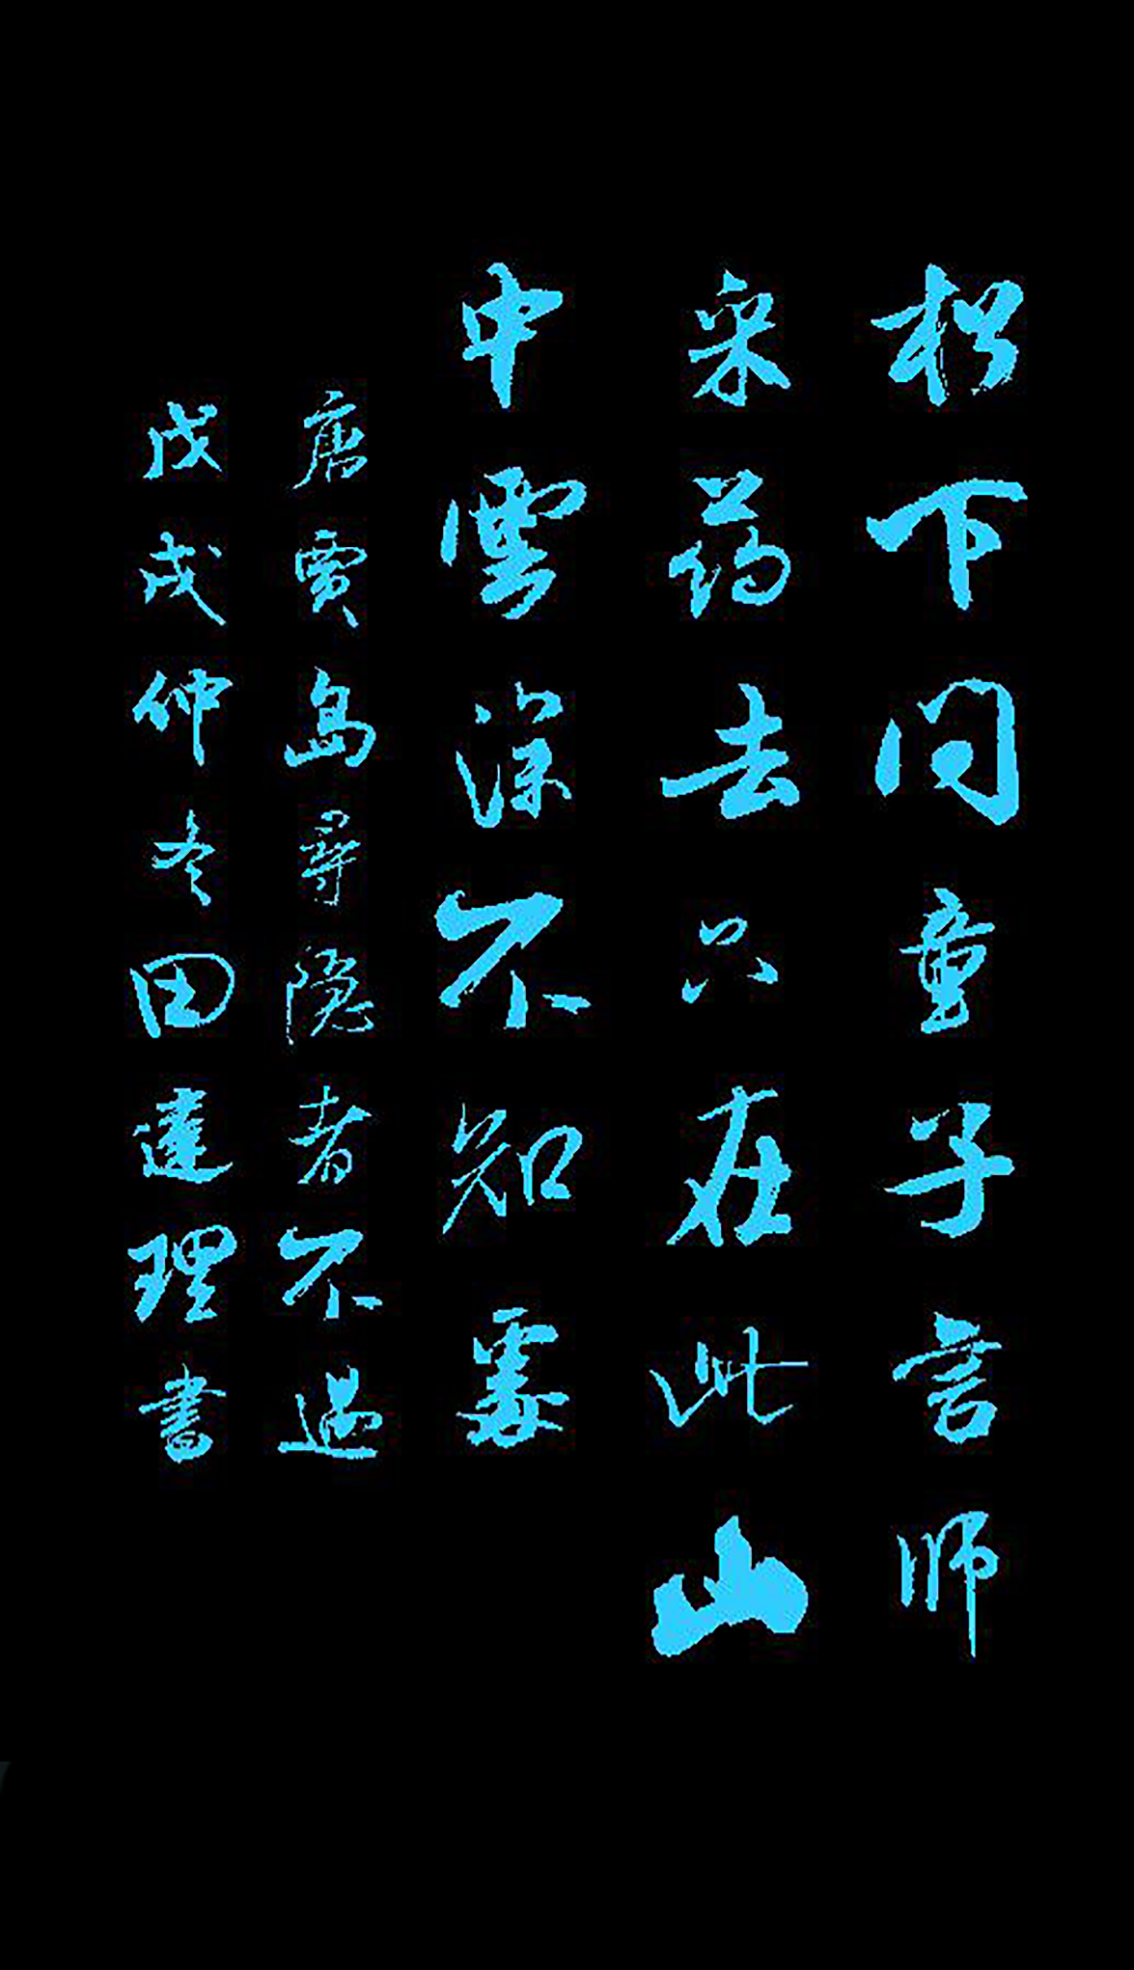 松下问童子言师
采药去只在此山
中雲深不知處
唐賈島尋隐者不遇
戊戌仲冬田達理書